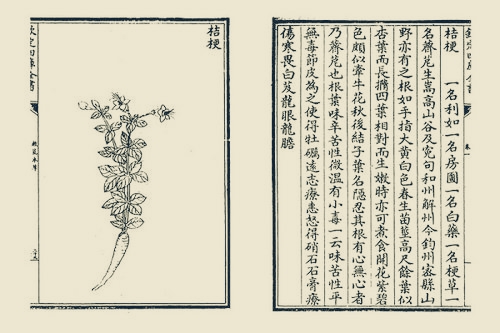 桔梗　一名利如一名房圖一名白藥一名梗草一
名薺苨生嵩高山谷及寃句和州解州今鈞州宻縣山
野亦有之根如手指大黄白色春生苗莖高尺餘葉似
杏葉而長撱四葉相對而生嫩時亦可煮食開花紫碧
色頗似牽牛花秋後結子葉名隠忍其根有心無心者
乃薺苨也根葉味辛苦性微溫有小毒一云味苦性平
無毒節皮為之使得牡礪遠志療恚怒得硝石石膏療
傷寒畏白芨龍眼龍膽
桔梗
欽定四庫全書
救荒本草